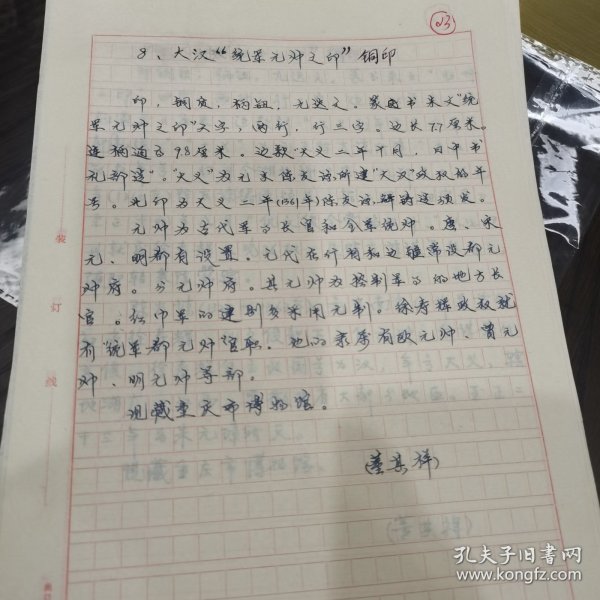 213
8、大汉“统军元帅之印”铜印
印,铜质,柄钮,无边文,篆书朱文“统
军元帅之印”六字,两行,行三字。边长7.7厘米。
连柄通高9.8厘米。边款“大义二年十月,日中书
礼部造”。“大义”为元末陈友谅所建“大汉”政权的年
号。此印为大义二年(1361年)陈友谅铸造颁发。
元帅为古代军事长官和全军统帅。唐、宋
元、明都有设置,元代在行省和边疆常设都元
帅府。分元帅府。其元帅为控制军事的地方长
官。红巾军的建制多采用元制。徐寿辉政权就
有“统军都元帅”官职。他的隶属有欧元帅、曾元
帅、明元帅等部。
现藏重庆市博物馆。
(董其祥)
装
订
线
孔夫子旧书网
www.kongfz.com